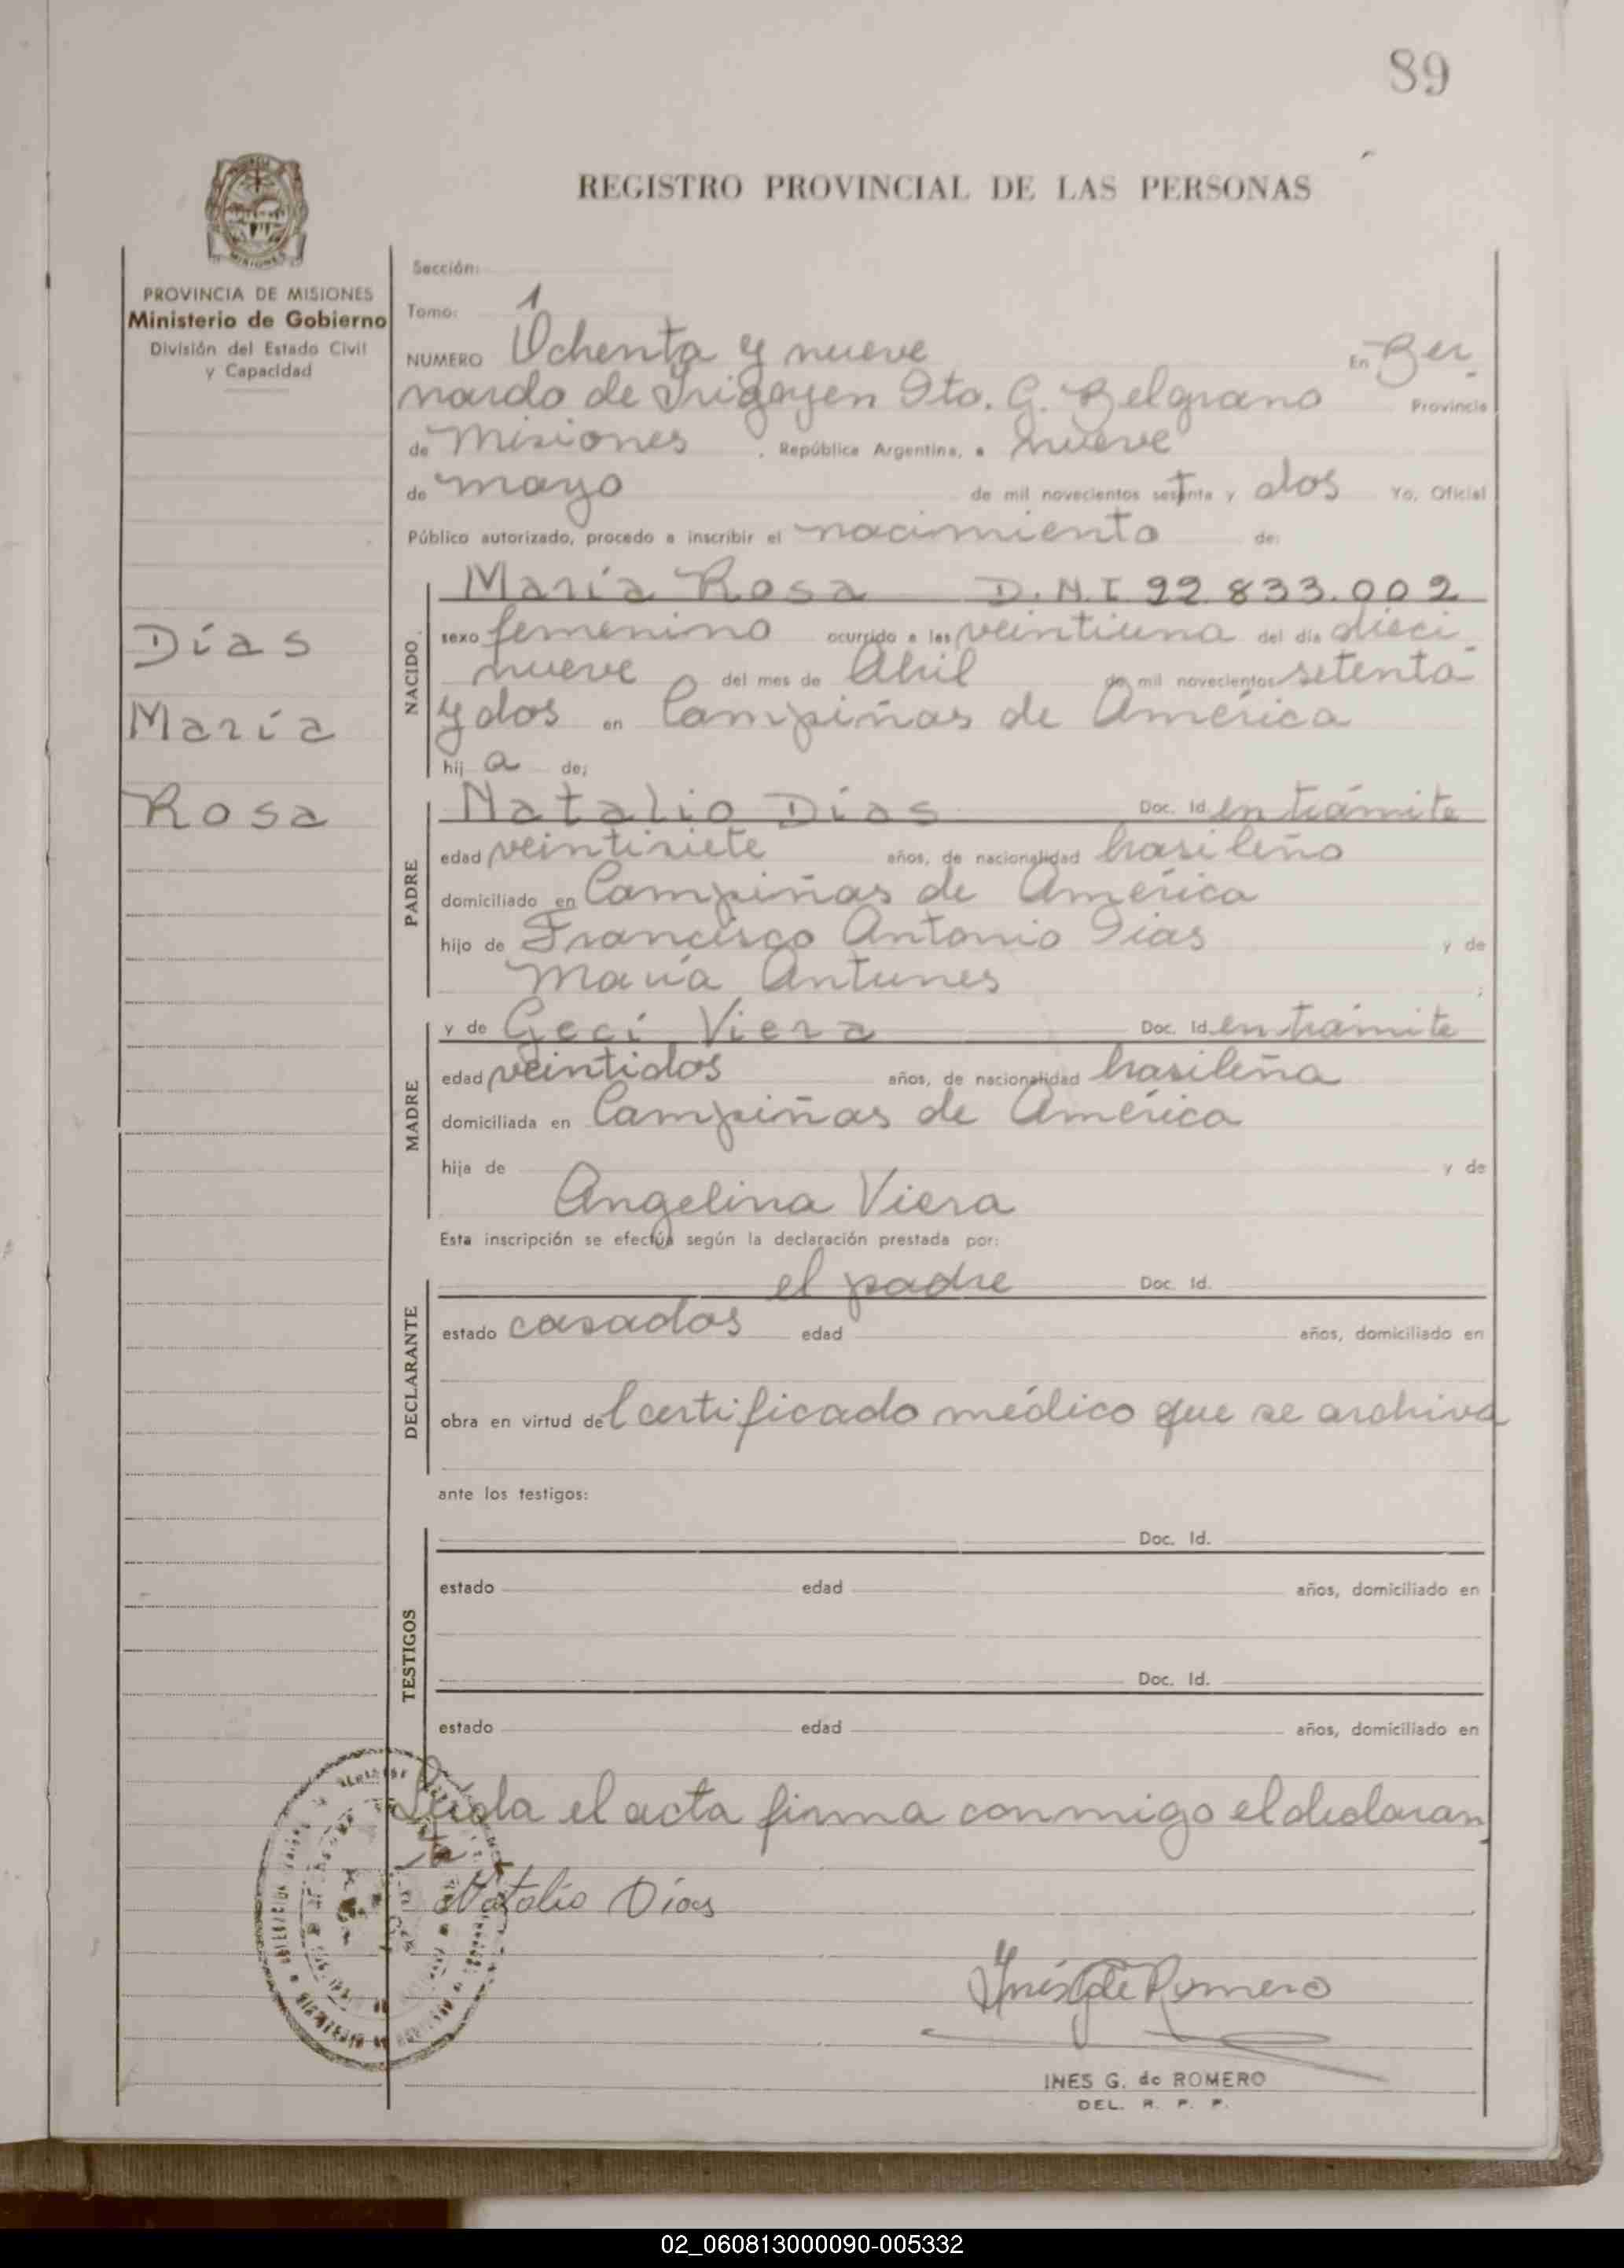 89
REGISTRO PROVINCIAL DE LAS PERSONAS
PROVINCIA DE MISIONES
Ministerio de Gobierno
División del Estado Civil
y Capacidad
Días
María
Rosa
Sección:
Tomo: 1
NUMERO Ochenta y nueve En Ber
nardo de Irigoyen Dto. G. Belgrano Provincia
de Misiones, República Argentina, a nueve
de mayo de mil novecientos setenta y dos Yo, Oficial
Público autorizado, procedo a inscribir el nacimiento de:
NACIDO
María Rosa D.N.I 22.833.002
sexo femenino ocurrido a las veintiuna del día dieci
nueve del mes de Abril de mil novecientos setenta
y dos en Campiñas de América
hij a de;
PADRE
Natalio Días Doc. Id. en trámite
edad veintisiete años, de nacionalidad brasileño
domiciliado en Campiñas de América
hijo de Francisco Antonio Dias y de
María Antunes ;
MADRE
y de Geci Viera Doc. Id. en trámite
edad veintidos años, de nacionalidad brasileña
domiciliada en Campiñas de América
hija de y de
Angelina Viera
Esta inscripción se efectúa según la declaración prestada por:
DECLARANTE
el padre Doc. Id.
estado casados edad años, domiciliado en
obra en virtud del certificado médico que se archiva
ante los testigos:
TESTIGOS
Doc. Id.
estado edad años, domiciliado en
Doc. Id.
estado edad años, domiciliado en
Leída el acta firma conmigo el declaran
te
Natalio Días
Inés G de Romero
INES G. de ROMERO
DEL. R. P. P.
02_060813000090-005332